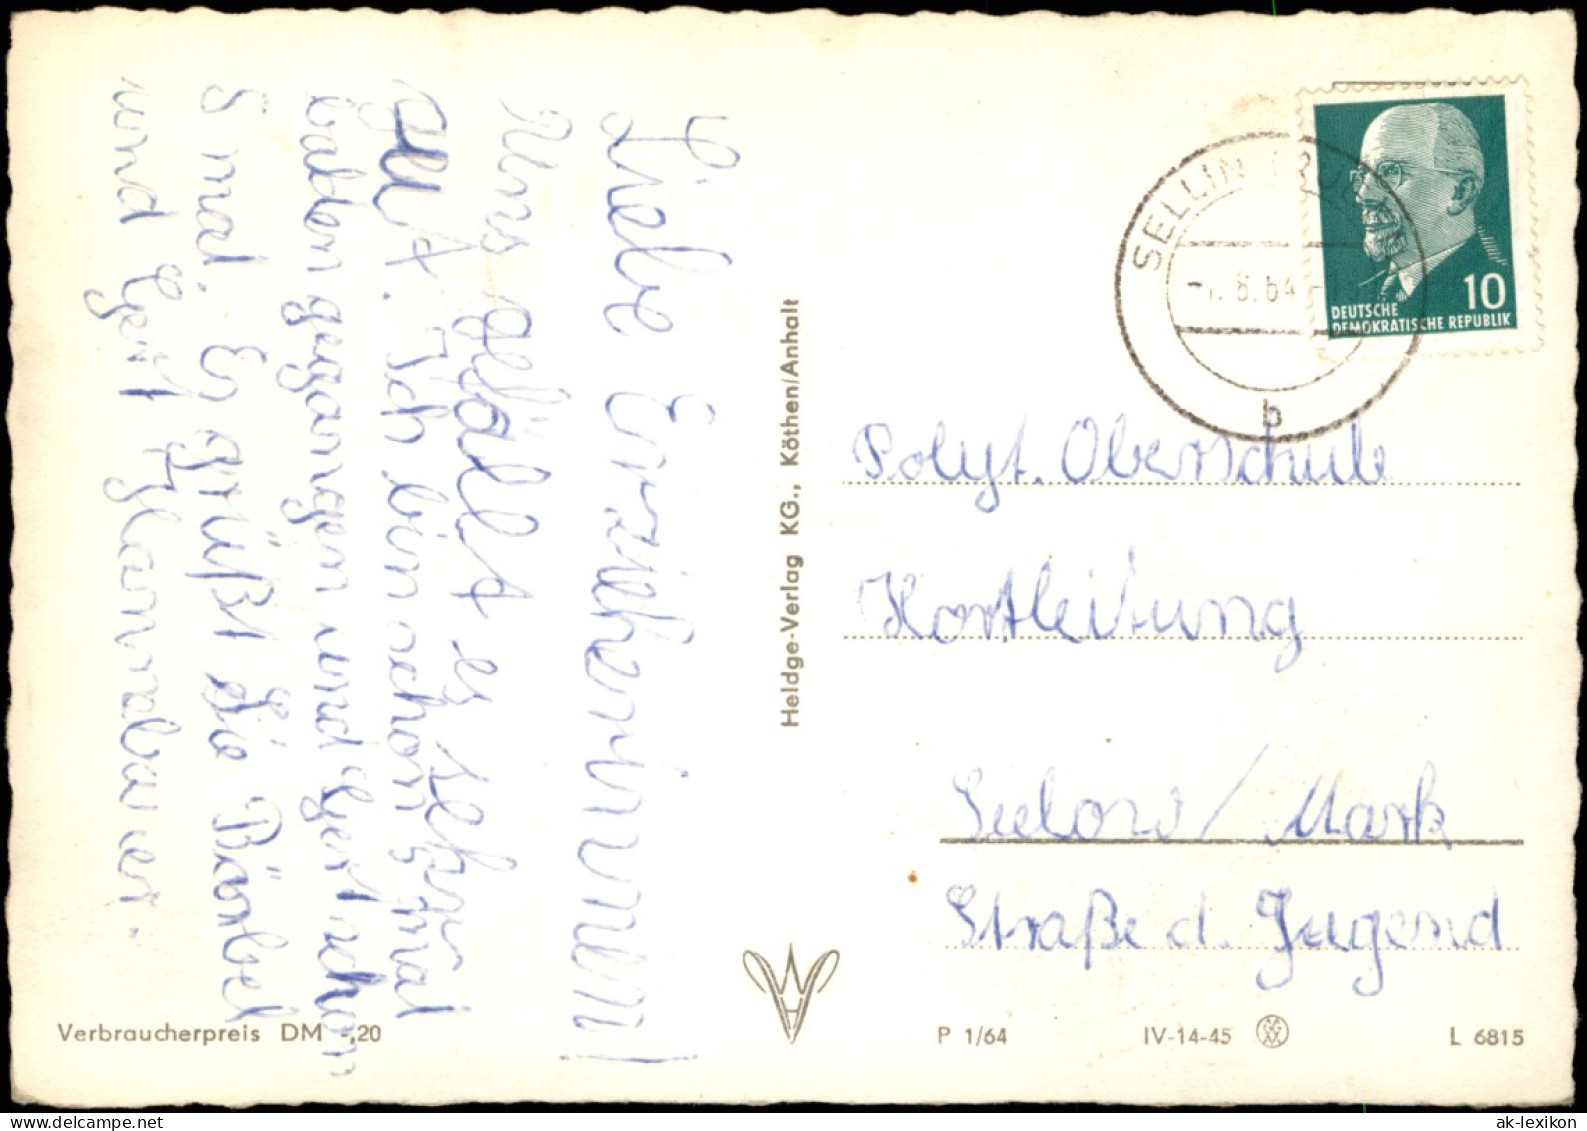 Liebe Erzieherinnen!
Uns gefällt es sehr
gut. Ich bin schon 5 mal
baden gegangen und Gert schon
8 mal. Es grüßt Sie Bärbel
und Gert
Heldge-Verlag KG., Köthen/Anhalt
SELLIN
8.64
b
10
DEUTSCHE
DEMOKRATISCHE REPUBLIK
Polyt. Oberschule
Hortleitung
Seelow/Mark
Straße d. Jugend
Verbraucherpreis DM -,20
P 1/64 IV-14-45 L 6815
ak-lexikon